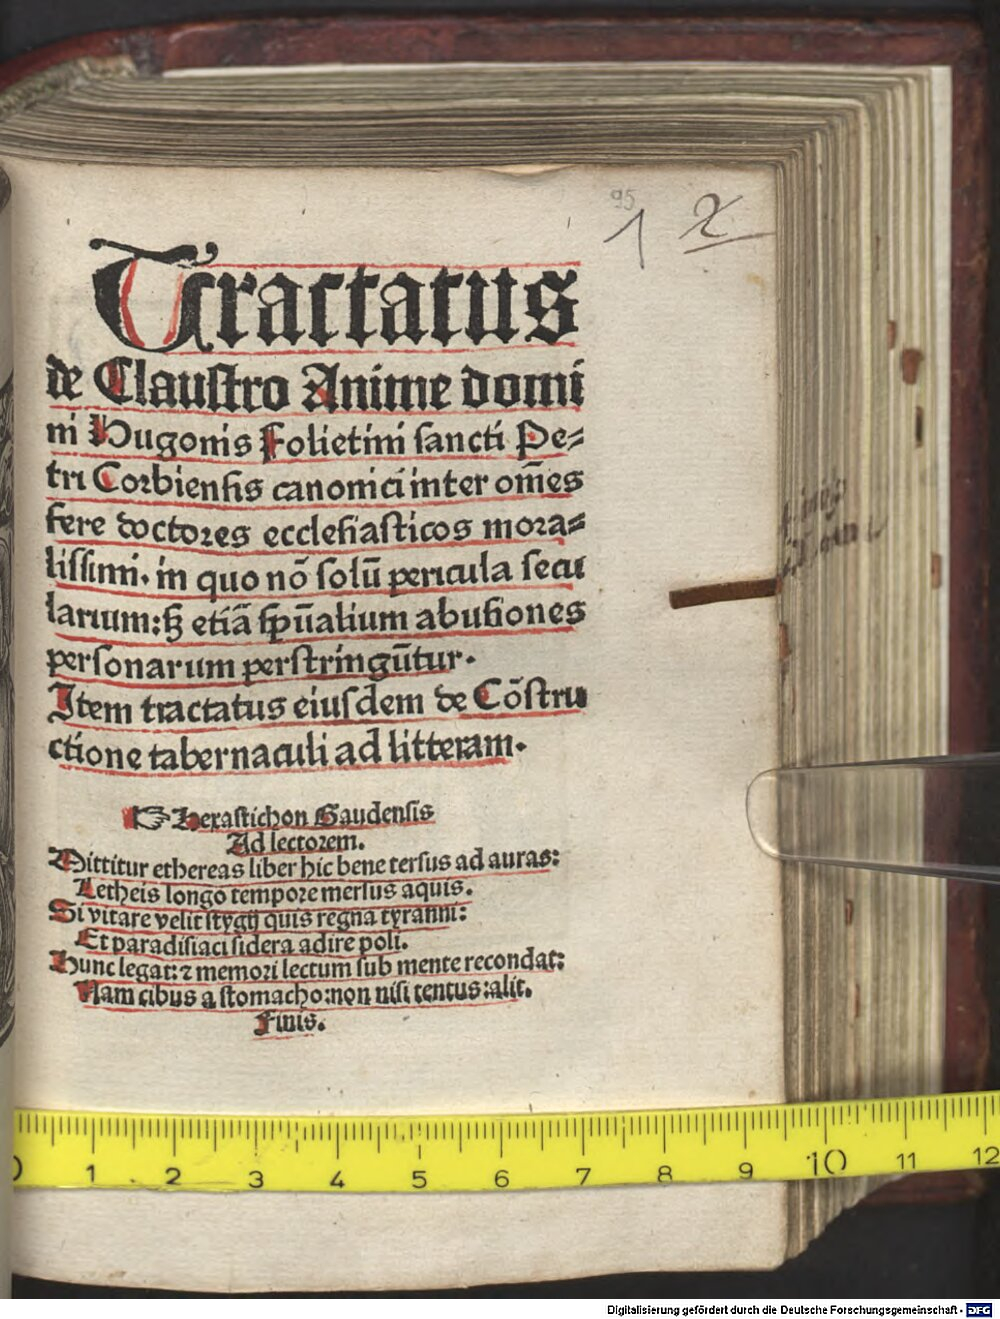 95
1 2
Tractatus
de Claustro Anime domi
ni Hugonis Folietini sancti Pe-
tri Corbiensis canonici inter om̄es
fere doctores ecclesiasticos mora-
lissimi. in quo nō solū pericula secu
larium: sꝫ etiā sp̄ualium abusiones
personarum perstringūtur.
Item tractatus eiusdem de Cōstru
ctione tabernaculi ad litteram.
☞ Hexastichon Gaudensis
Ad lectorem.
Mittitur ethereas liber hic bene tersus ad auras:
Letheis longo tempore mersus aquis.
Si vitare velit stygij quis regna tyranni:
Et paradisiaci sidera adire poli.
Hunc legat: ⁊ memori lectum sub mente recondat:
Nam cibus a stomacho: non nisi tentus: alit.
Finis.
0 1 2 3 4 5 6 7 8 9 10 11 12
Digitalisierung gefördert durch die Deutsche Forschungsgemeinschaft - DFG